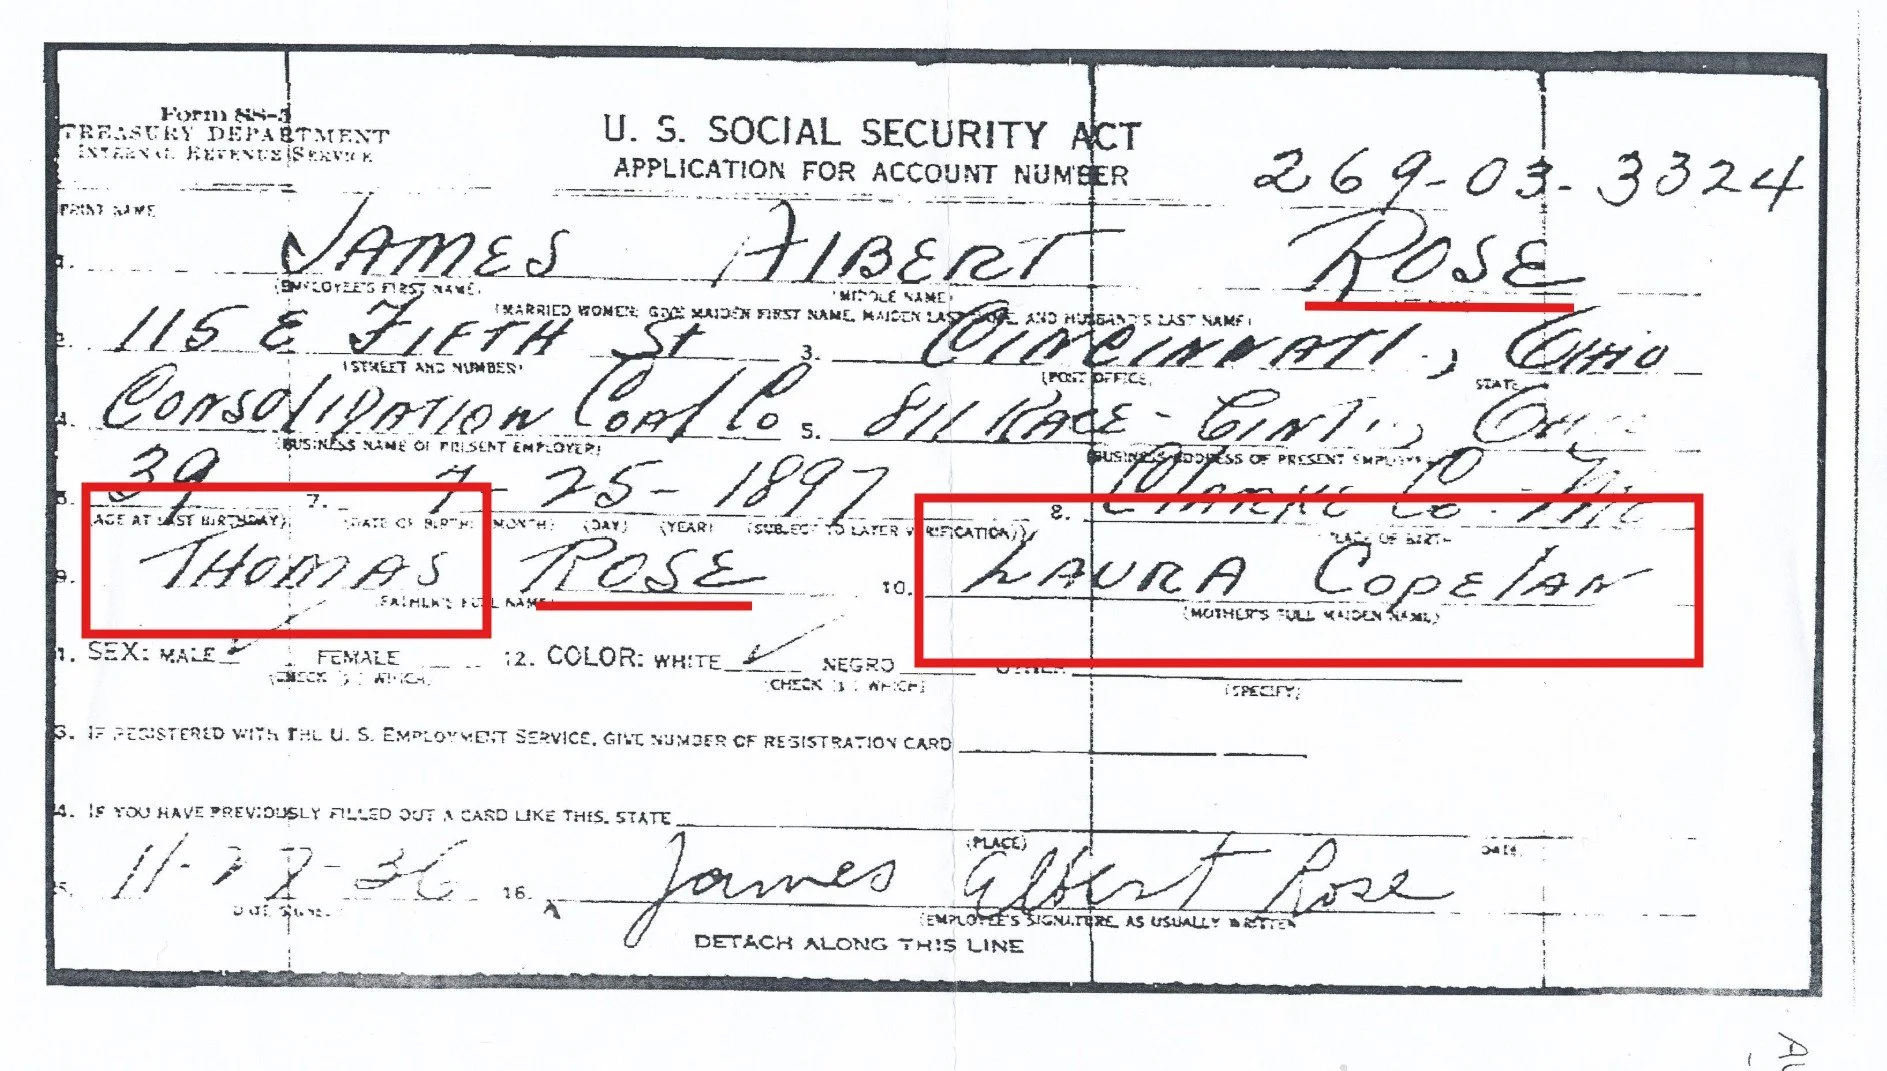 Form SS-5
TREASURY DEPARTMENT
INTERNAL REVENUE SERVICE
U. S. SOCIAL SECURITY ACT
APPLICATION FOR ACCOUNT NUMBER
269-03-3324
PRINT NAME
JAMES ALBERT ROSE
(EMPLOYEE'S FIRST NAME) (MIDDLE NAME)
(MARRIED WOMEN: GIVE MAIDEN FIRST NAME, MAIDEN LAST NAME, AND HUSBAND'S LAST NAME)
115 E FIFTH St 3. CINCINNATI, OHIO
(STREET AND NUMBER) (POST OFFICE) STATE
4. CONSOLIDATION COAL CO 5. 811 RACE - CINTI., OHIO
(BUSINESS NAME OF PRESENT EMPLOYER) (BUSINESS ADDRESS OF PRESENT EMPLOYER)
39 7. 7-25-1897 8. CLARKE CO.
(AGE AT LAST BIRTHDAY) (DATE OF BIRTH: (MONTH) (DAY) (YEAR) (SUBJECT TO LATER VERIFICATION)) PLACE OF BIRTH
9. THOMAS ROSE 10. LAURA COPELAN
(FATHER'S FULL NAME) (MOTHER'S FULL MAIDEN NAME)
1. SEX: MALE ✓ FEMALE 12. COLOR: WHITE ✓ NEGRO OTHER
(CHECK (✓) WHICH) (CHECK (✓) WHICH) (SPECIFY)
3. IF REGISTERED WITH THE U. S. EMPLOYMENT SERVICE, GIVE NUMBER OF REGISTRATION CARD
4. IF YOU HAVE PREVIOUSLY FILLED OUT A CARD LIKE THIS, STATE
(PLACE) DATE
5. 11-27-36 16. James Albert Rose
DATE SIGNED (EMPLOYEE'S SIGNATURE, AS USUALLY WRITTEN
DETACH ALONG THIS LINE